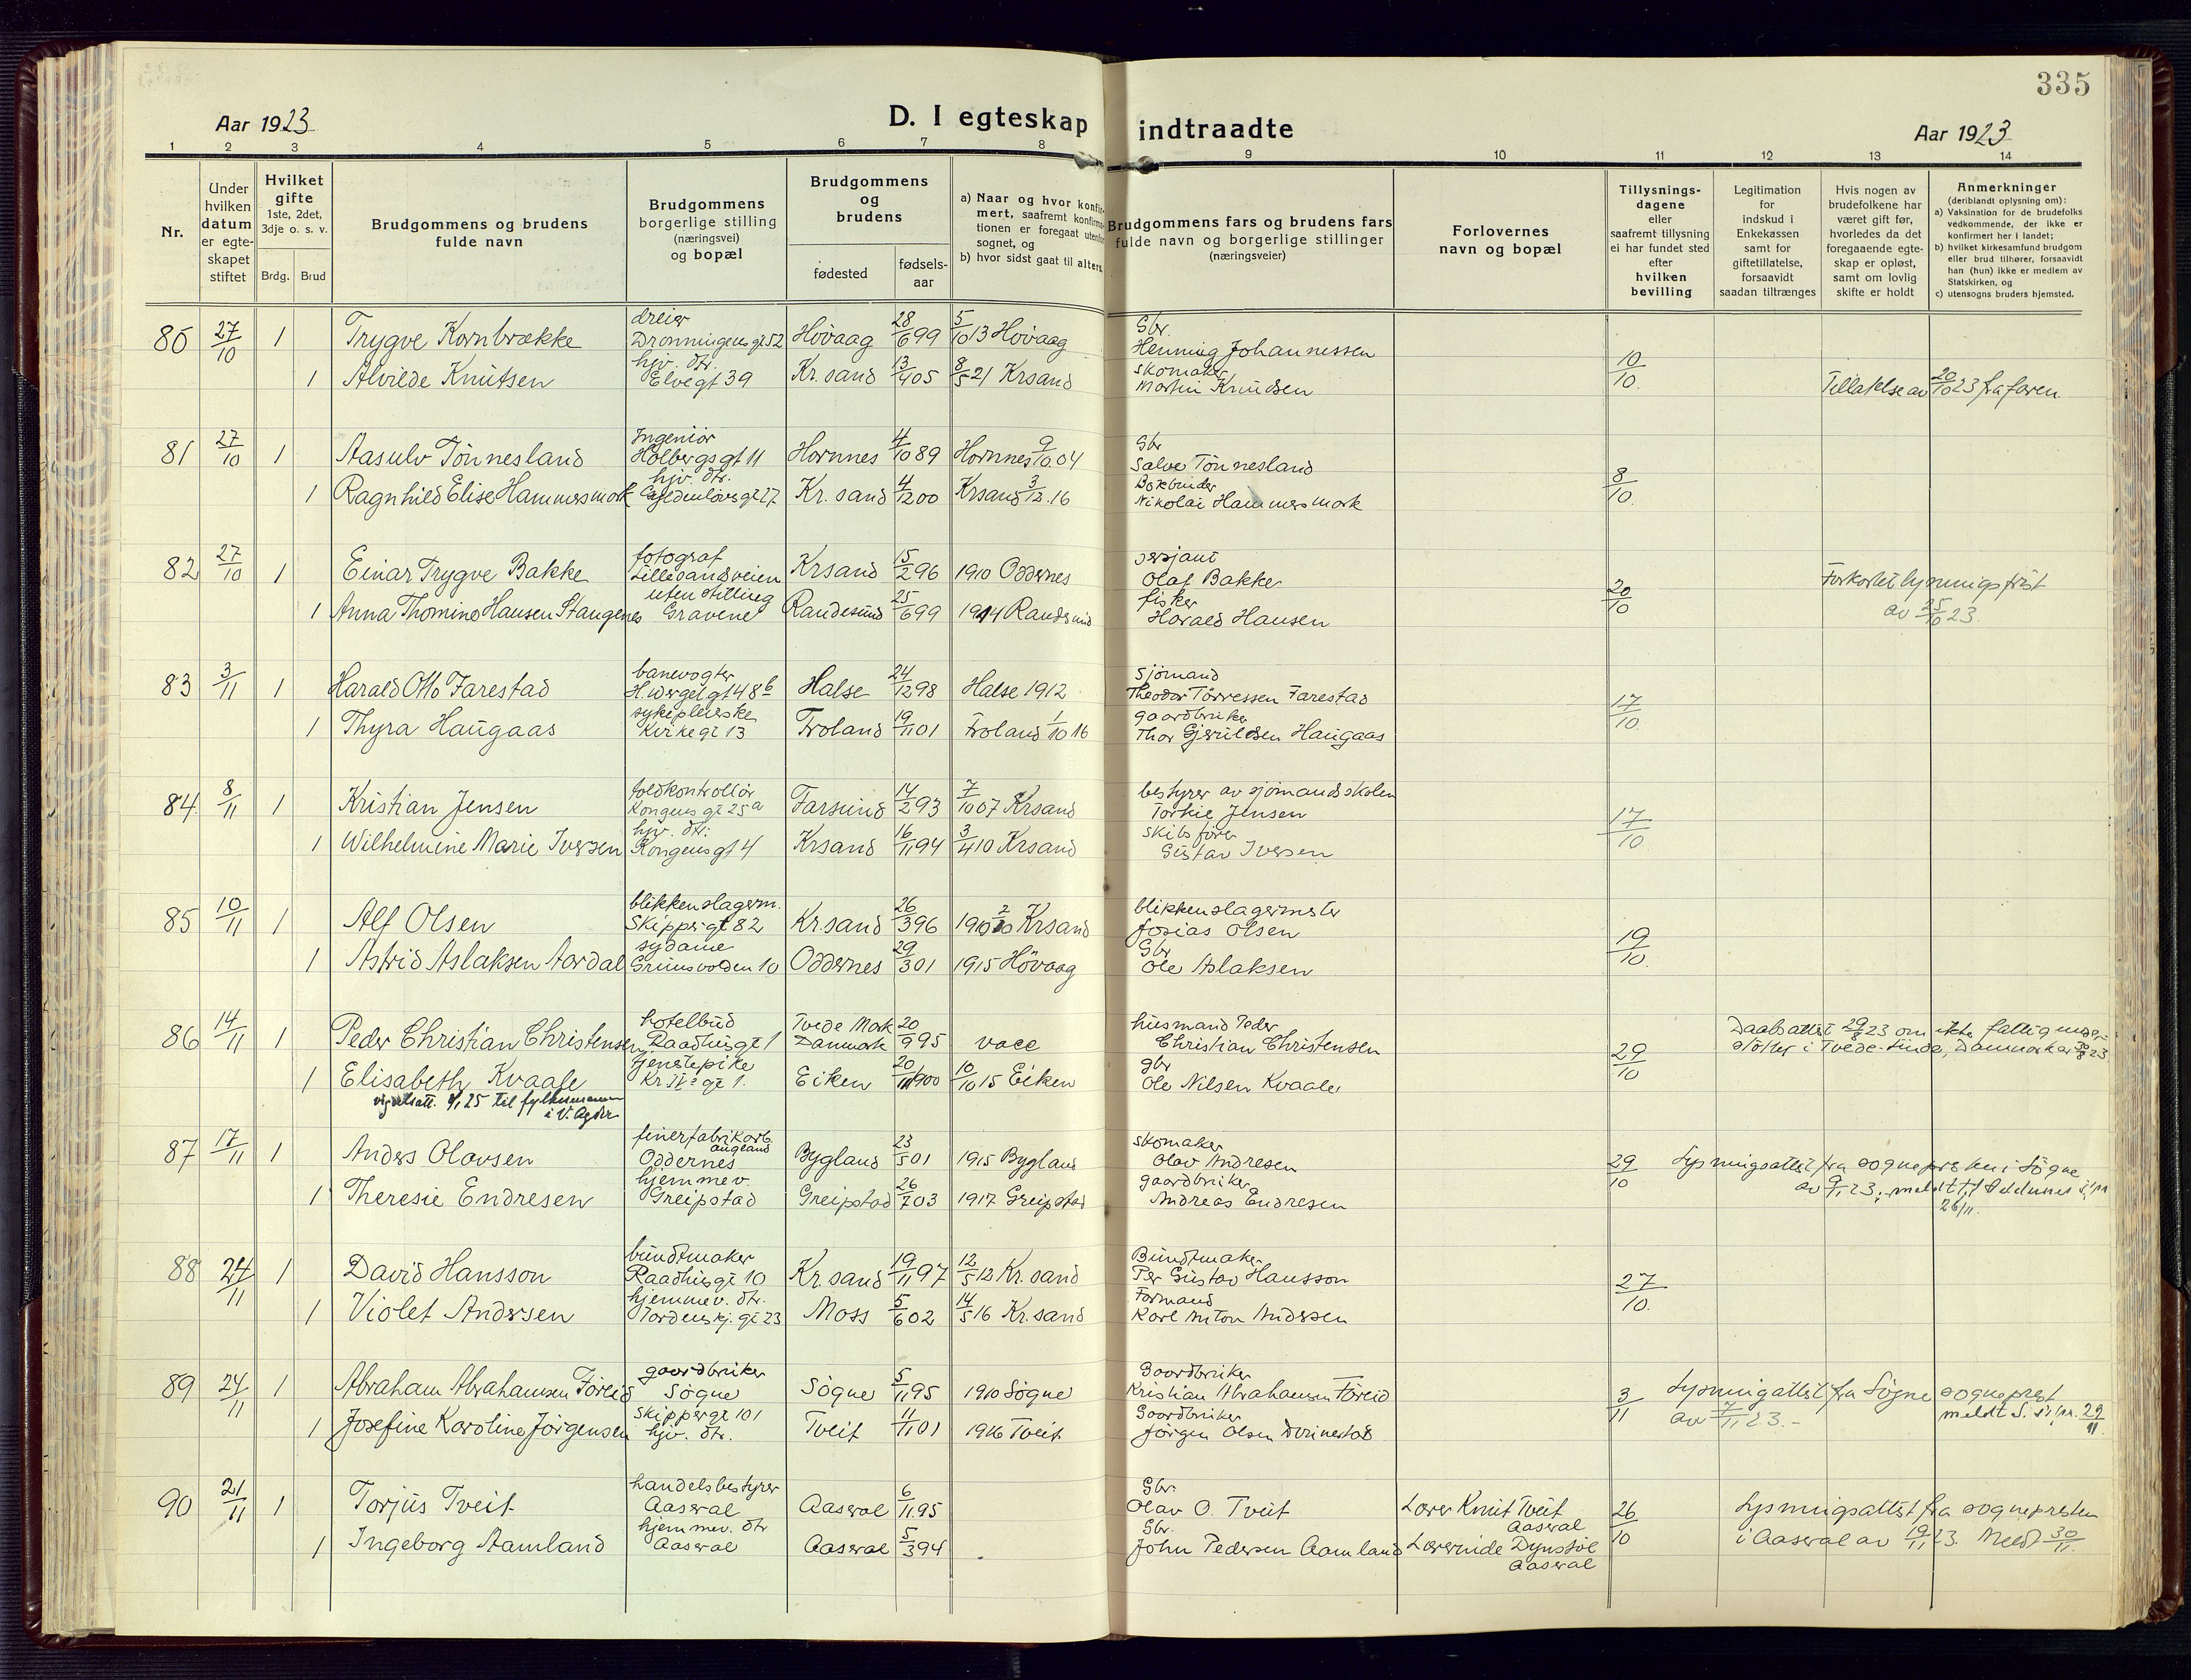 335
Aar 1923
D. I egteskap indtraadte
Aar 1923
1 2 3 4 5 6 7 8 9 10 11 12 13 14
Nr.
Under hvilken datum er egteskapet stiftet
Hvilket gifte 1ste, 2det, 3dje o. s. v.
Brdg. Brud
Brudgommens og brudens fulde navn
Brudgommens borgerlige stilling (næringsvei) og bopæl
Brudgommens og brudens
fødested
fødsels-aar
a) Naar og hvor konfirmert, saafremt konfirmationen er foregaat utenfor sognet, og
b) hvor sidst gaat til alters.
Brudgommens fars og brudens fars fulde navn og borgerlige stillinger (næringsveier)
Forlovernes navn og bopæl
Tillysnings-dagene eller saafremt tillysning ei har fundet sted efter hvilken bevilling
Legitimation for indskud i Enkekassen samt for giftetillatelse, forsaavidt saadan tiltrænges
Hvis nogen av brudefolkene har været gift før, hvorledes da det foregaaende egteskap er opløst, samt om lovlig skifte er holdt
Anmerkninger (deriblandt oplysning om):
a) Vaksination for de brudefolks vedkommende, der ikke er konfirmert her i landet;
b) hvilket kirkesamfund brudgom eller brud tilhører, forsaavidt han (hun) ikke er medlem av Statskirken, og
c) utensogns bruders hjemsted.
80 27/10 1 Trygve Kornbrække dreier Dronningens gt 52 Hövaag 28/6 99 5/10 13 Hövaag Gbr. Henning Johannessen 10/10.
1 Alvilde Knutsen hjv. dtr. Elvegt 39 Kr.sand 13/4 05 8/5 21 Krsand skomaker Martin Knudsen Tillatelse av 20/10 23 fra faren.
81 27/10 1 Aasulv Tönnesland Ingeniör Holbergsgt 11 Hornnes 4/10 89 Hornnes 9/10.04 Gbr Salve Tönnesland 8/10.
1 Ragnhild Elise Hammersmark hjv. dtr. Gyldenlövesgt 27 Kr.sand 4/12 00 Krsand 3/12.16 Bokbinder Nikolai Hammersmark
82 27/10 1 Einar Trygve Bakke fotograf Lillesandsveien Krsand 15/2 96 1910 Oddernes serjant Olaf Bakke 20/10 Forkortet lysningsfrist
1 Anna Thomine Hansen Stangenes uten stilling Gravene Randesund 25/6 99 1914 Randesund fisker Harald Hansen av 25/10 23.
83 3/11 1 Harald Otto Farestad banevogter H.Wergel.gt 48 b Halse 24/12 98 Halse 1912. Sjömand Theodor Törressen Farestad 17/10.
1 Thyra Haugaas sykepleierske Kirkegt 13 Froland 19/11 01 Froland 1/10 16 gaardbruker Thor Gjeruldsen Haugaas
84. 8/11 1 Kristian Jensen toldkontrollör Kongens gt 25a Farsund 14/2 93 7/10 07 Krsand bestyrer av sjömandsskolen Torkie Jensen 17/10
1 Wilhelmine Marie Iversen hjv. dtr. Kongensgt 4 Krsand 16/11 94 3/4 10 Krsand skibsförer Gustav Iversen
85 10/11 1 Alf Olsen blikkenslagerm. Skippergt 82 Kr.sand 26/3 96 Krsand blikkenslagermester Josias Olsen 19/10.
1 Astrid Aslaksen Aardal sydame Grünsvolden 10 Oddernes 29/3 01 1915 Hövaag Gbr Ole Aslaksen
86 14/11 1 Peder Christian Christensen hotelbud Raadhusgt 1 Tvede Mark Danmark 20/9 95 vacc husmand Peder Christian Christensen 29/10 Daabsattest 29/8 23 om ikke fattigunder-
stöttet i Tvede-Linde, Danmark av 30/8 23
1 Elisabeth Kvaale tjenestepike Kr. IVs gt 1. Eiken 20/11 1900 10/10 15 Eiken gbr Ole Nilsen Kvaale
vigselsatt. 9/1 25 til fylkesmannen i V. Agder
87 17/11 1 Anders Olavsen finerfabrikarb. Augland Oddernes Bygland 23/5 01 1915 Bygland skomaker Olav Andresen 29/10 Lysningsattest fra sognepresten i Sögne
1 Theresie Endresen hjemmev. Greipstad Greipstad 26/7 03 1917 Greipstad gaardbruker Andreas Endresen av 9/11 23; meldt til Oddernes s.pr. 26/11.
88 24/11 1 David Hansson bundtmaker Raadhusgt 10 Kr.sand 19/11 97 12/5 12 Kr.sand Bundtmaker Per Gustav Hansson 27/10.
1 Violet Andersen hjemmev. dtr. Tordenskj. gt 23 Moss 5/6 02 14/5 16 Kr.sand Formand Karl Anton Andersen
89 24/11 1 Abraham Abrahamsen Föreid gaardbruker Sögne Sögne 5/11 95 1910 Sögne Gaardbruker Kristian Abrahamsen Föreid 3/11 Lysningattest fra Sögne sogneprest
1 Josefine Karoline Jörgensen Skippergt 101 hjv. dtr. Tveit 11/11 01 1916 Tveit Gaardbruker Jörgen Olsen av 7/11 23.- meldt S. s.pr. 29/11.
90 21/11 1 Torjus Tveit handelsbestyrer Aaseral Aaseral 6/11 95 Gbr. Olav O. Tveit Lærer Knut Tveit Aaseral 26/10 Lysningsattest fra sognepresten
1 Ingeborg Aamland hjemmev. dtr Aaseral Aaseral 5/3 94 Gbr. John Pedersen Aamland Dynstöl Aaseral i Aaseral av 19/11 23. Meldt 30/11.